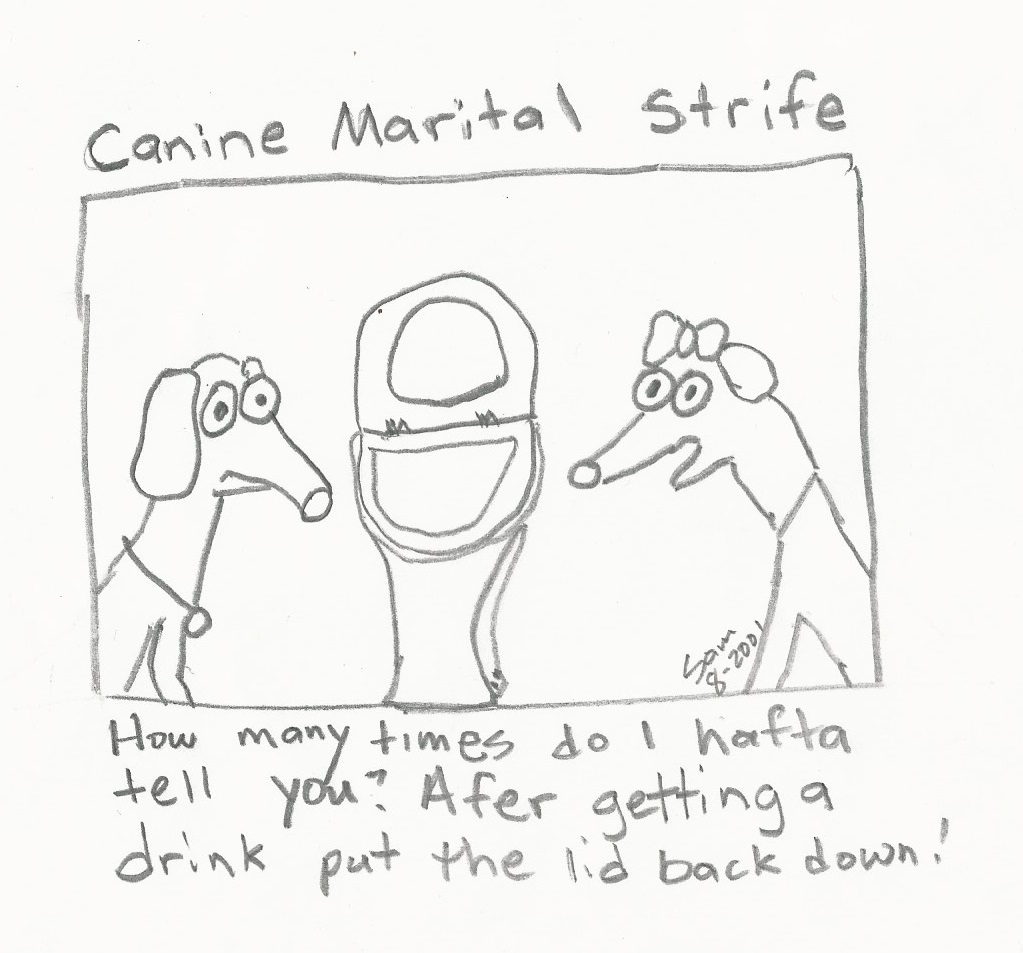 Canine Marital Strife
Sam
8-2001
How many times do I hafta
tell you? Afer getting a
drink put the lid back down!